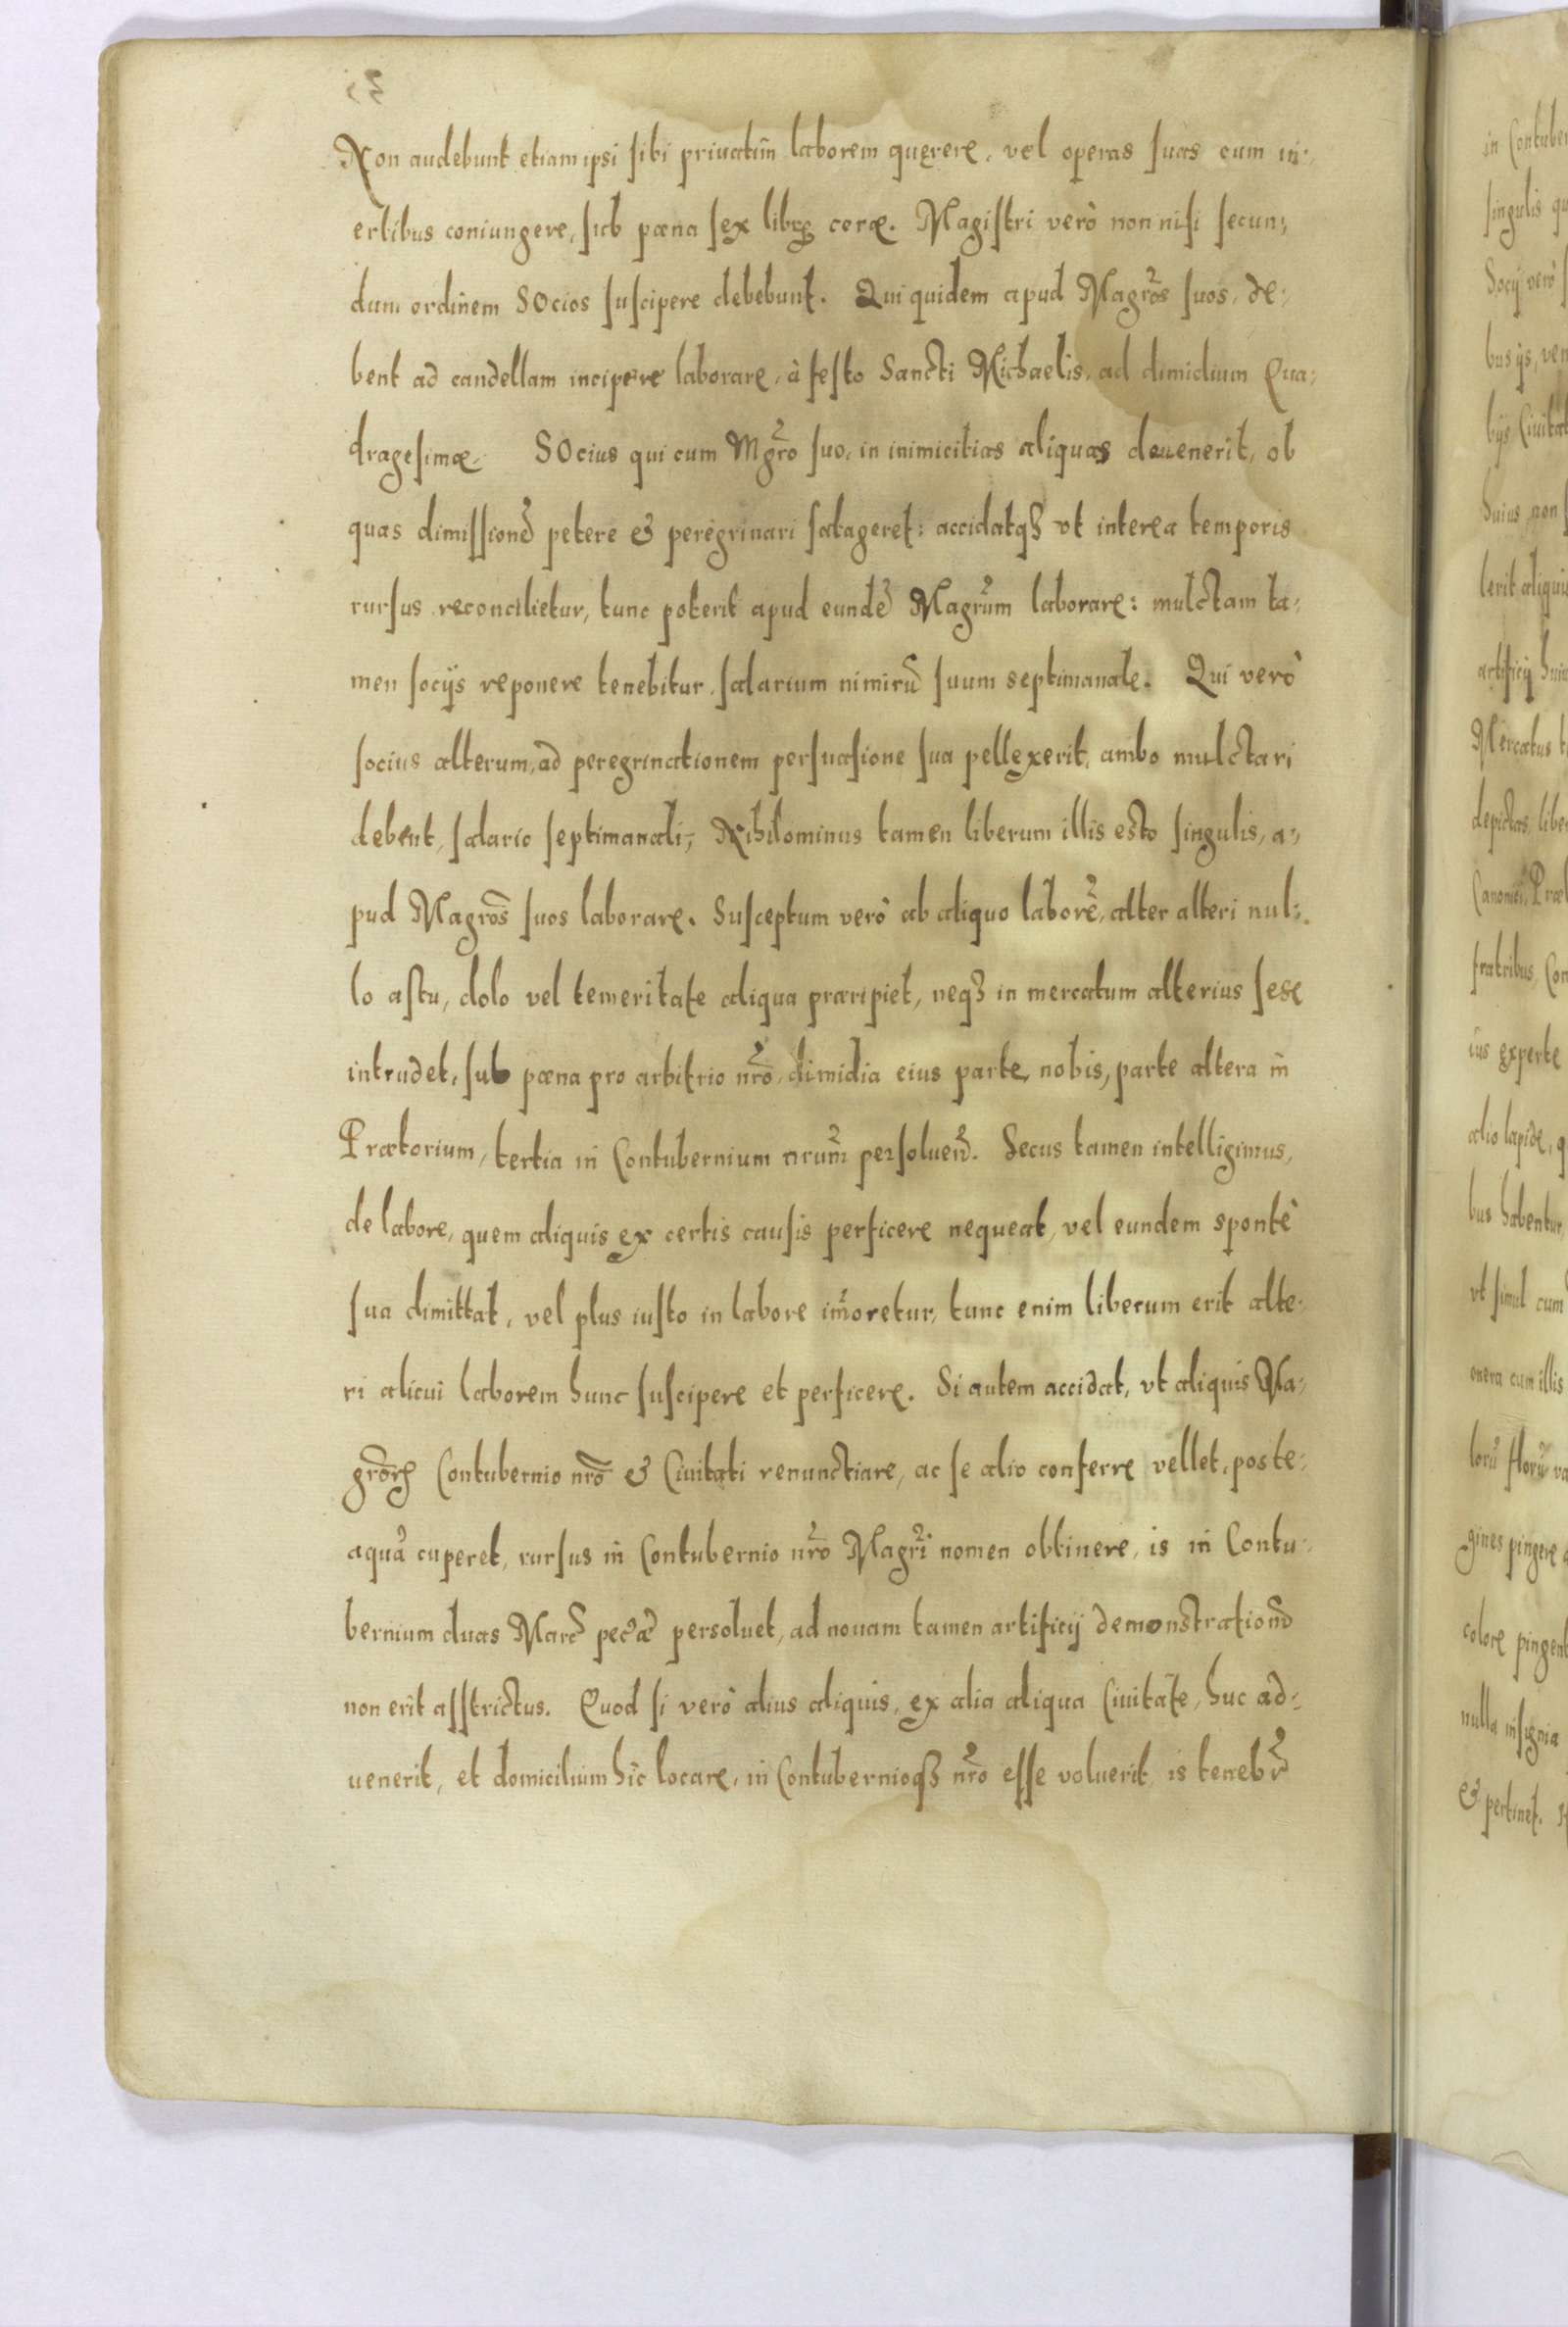 Non audebunt etiam ipsi sibi priuatim̃ laborem quęrere, vel operas suas cum in:
ertibus coniungere, sub pœna sex libꝝ ceræ. Magistri verò non nisi secun:
dum ordinem SOcios suscipere debebunt. Qui quidem apud Magr̃os suos, de:
bent ad candellam incipere laborare, à festo Sancti Michaelis, ad dimidium Qua:
dragesimæ. SOcius qui cum Mgr̃o suo, in inimicitias aliquas deuenerit, ob
quas dimissionẽ petere & peregrinari satageret: accidatqꝫ vt interea temporis
rursus reconcilietur, tunc poterit apud eundẽ Magr̃um laborare: mulctam ta:
men socijs reponere tenebitur, salarium nimirũ suum septimanale. Qui verò
socius alterum, ad peregrinationem persuasione sua pellexerit, ambo mulctari
debent, salario septimanali, Nihilominus tamen liberum illis esto singulis, a:
pud Magr̃os suos laborare. Susceptum verò ab aliquo laborẽ, alter alteri nul:
lo astu, dolo vel temeritate aliqua præripiet, neqꝫ in mercatum alterius sese
intrudet, sub pœna pro arbitrio nr̃o, dimidia eius parte nobis, parte altera in
Prætorium, tertia in Contubernium nr̃um persoluen̄d. Secus tamen intelligimus,
de labore, quem aliquis ex certis causis perficere nequeat, vel eundem spontè
sua dimittat, vel plus iusto in labore im̃oretur, tunc enim liberum erit alte:
ri alicui laborem hunc suscipere et perficere. Si autem accidat, vt aliquis Ma:
gr̃orꝝ Contubernio nr̃o & Ciuitati renunctiare, ac se alio conferre vellet, poste:
aquã cuperet, rursus in Contubernio nr̃o Magr̃i nomen obtinere, is in Contu:
bernium duas Marc̃ pec̃æ persoluet, ad nouam tamen artificij demonstrationẽ
non erit asstrictus. Quod si verò alius aliquis, ex alia aliqua Ciuitate, huc ad:
uenerit, et domicilium hîc locare, in Contubernioqꝫ nr̃o esse voluerit, is tenebr̃